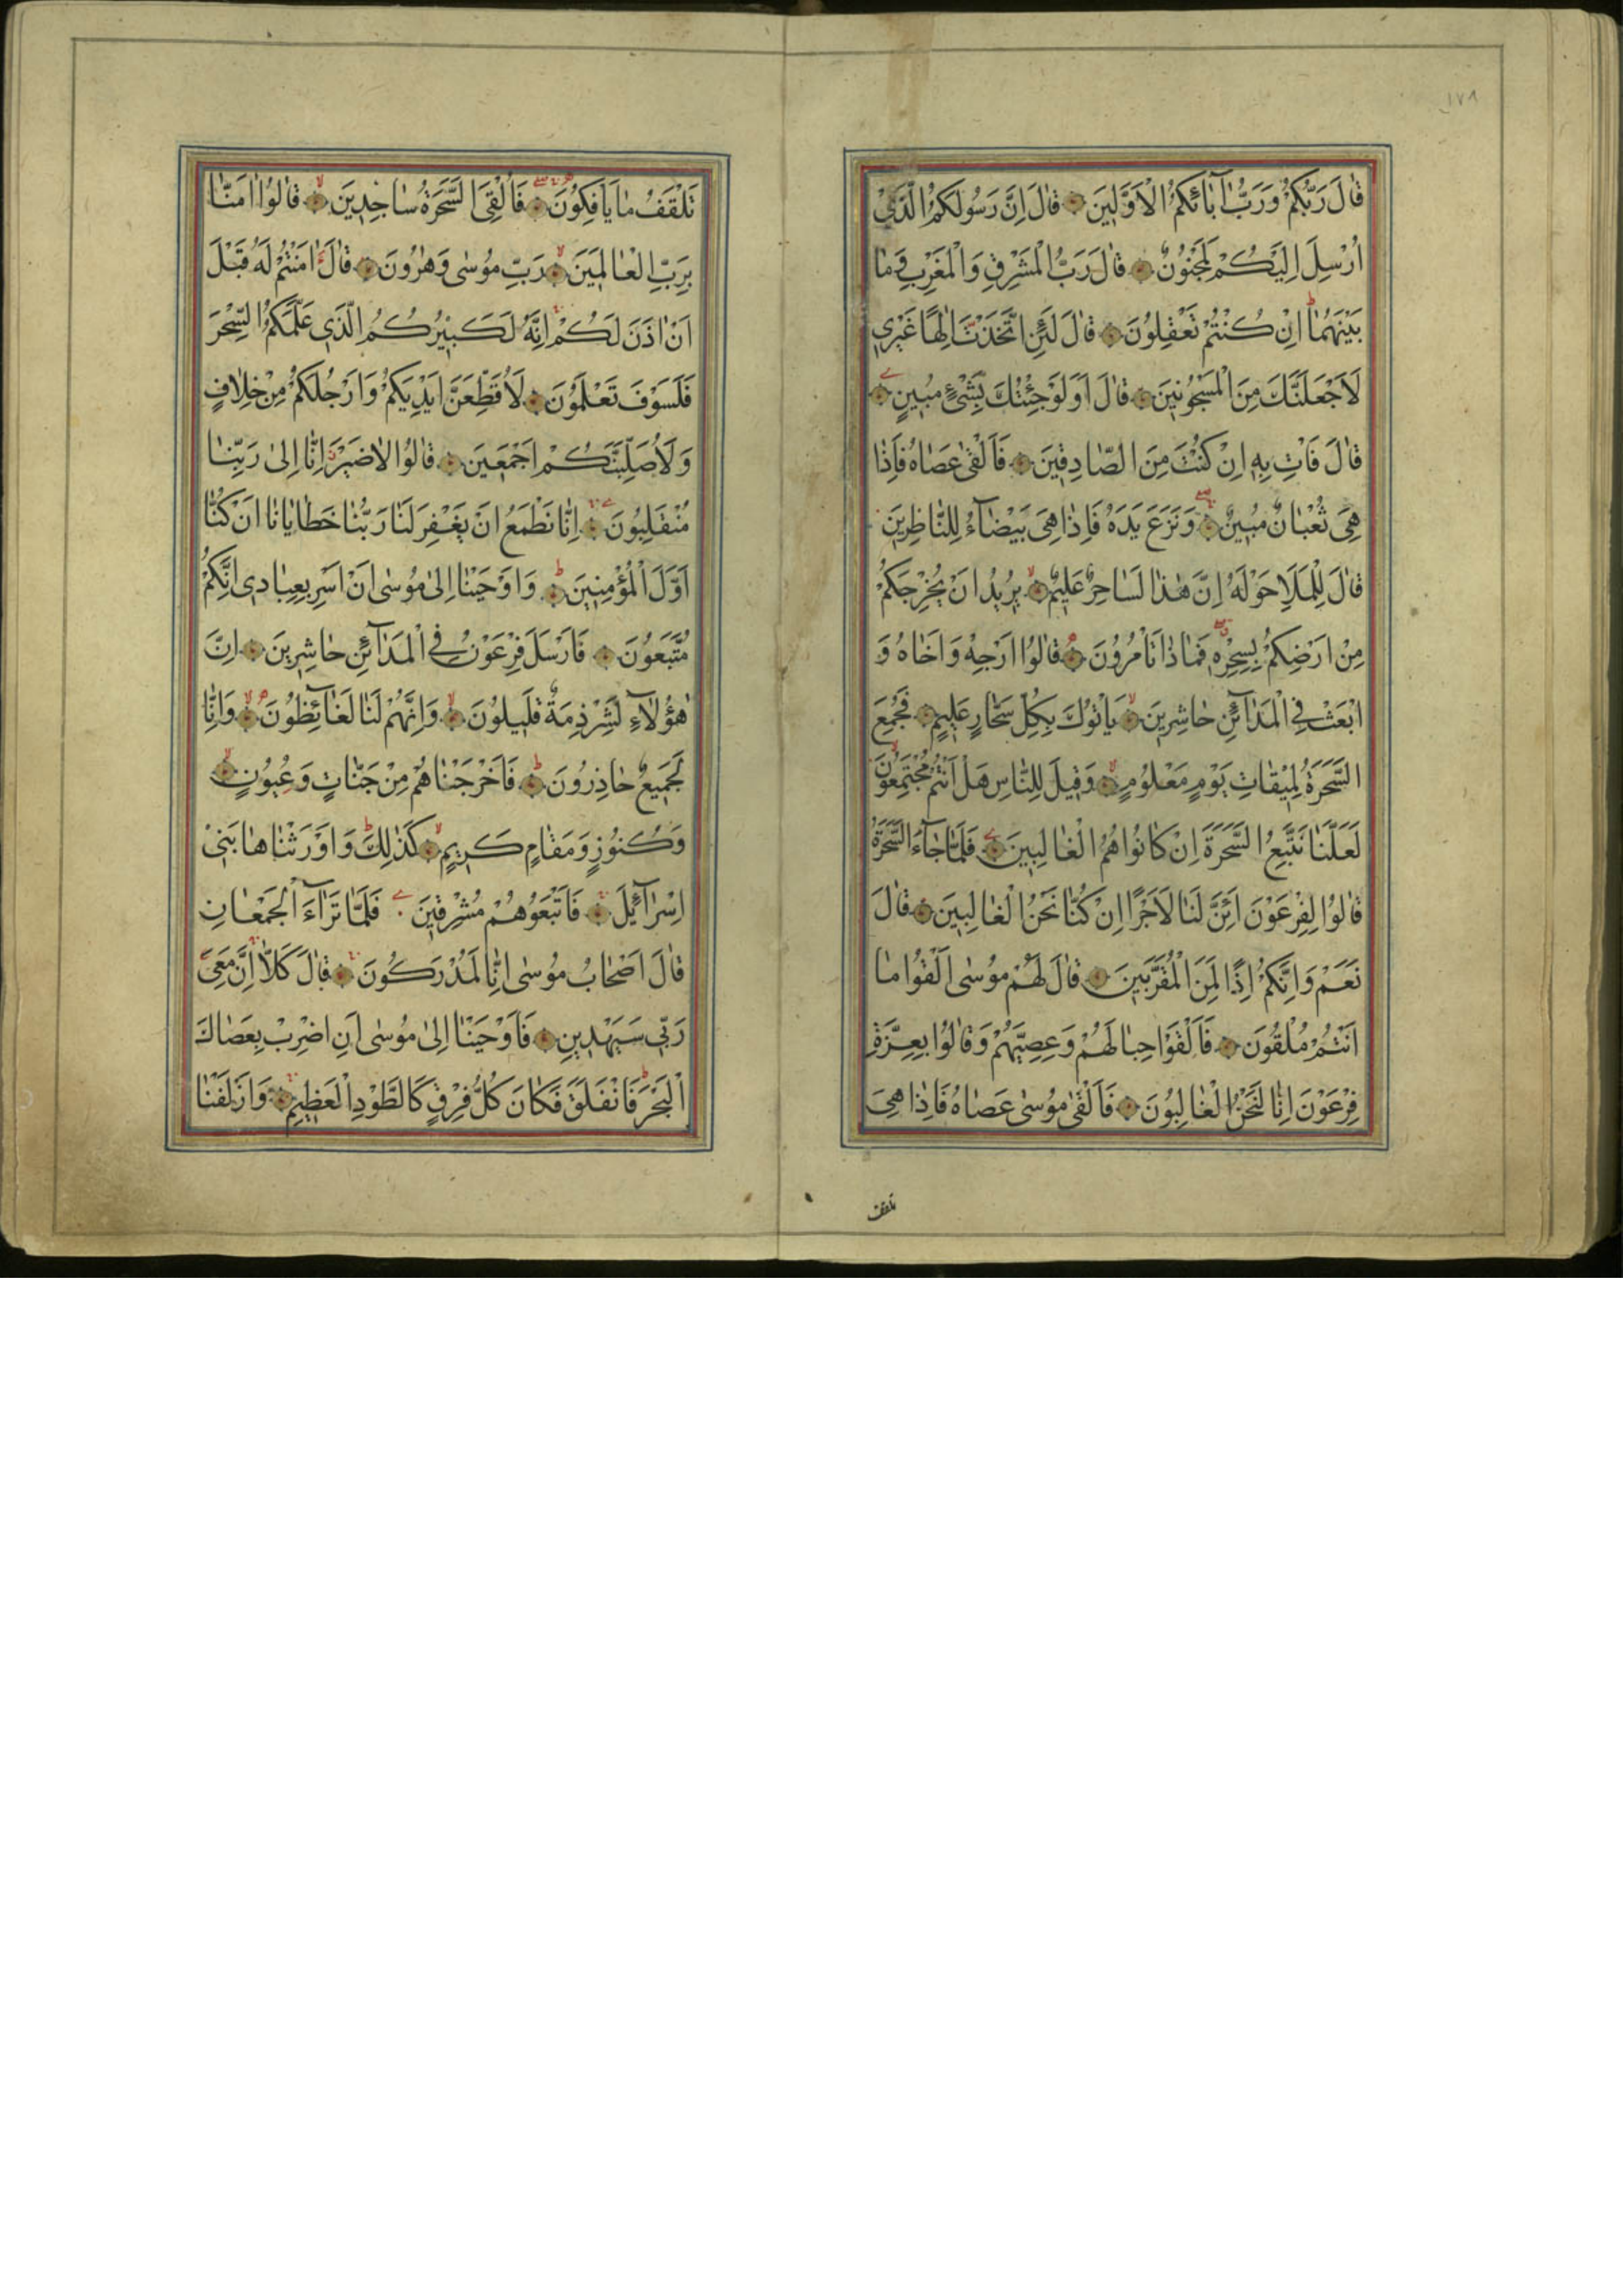 ١٧٨
قَالَ رَبُّكُمْ وَرَبُّ اٰبَائِكُمُ الْاَوَّلِينَ قَالَ اِنَّ رَسُولَكُمُ الَّذِي
اُرْسِلَ اِلَيْكُمْ لَمَجْنُونٌ قَالَ رَبُّ الْمَشْرِقِ وَالْمَغْرِبِ وَمَا
بَيْنَهُمَا اِنْ كُنْتُمْ تَعْقِلُونَ قَالَ لَئِنِ اتَّخَذْتَ اِلٰهًا غَيْرِي
لَاَجْعَلَنَّكَ مِنَ الْمَسْجُونِينَ قَالَ اَوَلَوْ جِئْتُكَ بِشَيْءٍ مُبِينٍ
قَالَ فَاْتِ بِهِ اِنْ كُنْتَ مِنَ الصَّادِقِينَ فَاَلْقٰى عَصَاهُ فَاِذَا
هِيَ ثُعْبَانٌ مُبِينٌ وَنَزَعَ يَدَهُ فَاِذَا هِيَ بَيْضَاءُ لِلنَّاظِرِينَ
قَالَ لِلْمَلَاِ حَوْلَهُ اِنَّ هٰذَا لَسَاحِرٌ عَلِيمٌ يُرِيدُ اَنْ يُخْرِجَكُمْ
مِنْ اَرْضِكُمْ بِسِحْرِهِ فَمَاذَا تَاْمُرُونَ قَالُوا اَرْجِهْ وَاَخَاهُ وَ
ابْعَثْ فِي الْمَدَآئِنِ حَاشِرِينَ يَاْتُوكَ بِكُلِّ سَحَّارٍ عَلِيمٍ فَجُمِعَ
السَّحَرَةُ لِمِيقَاتِ يَوْمٍ مَعْلُومٍ وَقِيلَ لِلنَّاسِ هَلْ اَنْتُمْ مُجْتَمِعُونَ
لَعَلَّنَا نَتَّبِعُ السَّحَرَةَ اِنْ كَانُوا هُمُ الْغَالِبِينَ فَلَمَّا جَآءَ السَّحَرَةُ
قَالُوا لِفِرْعَوْنَ اَئِنَّ لَنَا لَاَجْرًا اِنْ كُنَّا نَحْنُ الْغَالِبِينَ قَالَ
نَعَمْ وَاِنَّكُمْ اِذًا لَمِنَ الْمُقَرَّبِينَ قَالَ لَهُمْ مُوسٰى اَلْقُوا مَا
اَنْتُمْ مُلْقُونَ فَاَلْقَوْا حِبَالَهُمْ وَعِصِيَّهُمْ وَقَالُوا بِعِزَّةِ
فِرْعَوْنَ اِنَّا لَنَحْنُ الْغَالِبُونَ فَاَلْقٰى مُوسٰى عَصَاهُ فَاِذَا هِيَ
تلقف
تَلْقَفُ مَا يَاْفِكُونَ فَاُلْقِيَ السَّحَرَةُ سَاجِدِينَ قَالُوا اٰمَنَّا
بِرَبِّ الْعَالَمِينَ رَبِّ مُوسٰى وَهٰرُونَ قَالَ ءَامَنْتُمْ لَهُ قَبْلَ
اَنْ اٰذَنَ لَكُمْ اِنَّهُ لَكَبِيرُكُمُ الَّذِي عَلَّمَكُمُ السِّحْرَ
فَلَسَوْفَ تَعْلَمُونَ لَاُقَطِّعَنَّ اَيْدِيَكُمْ وَاَرْجُلَكُمْ مِنْ خِلَافٍ
وَلَاُصَلِّبَنَّكُمْ اَجْمَعِينَ قَالُوا لَاضَيْرَ اِنَّا اِلٰى رَبِّنَا
مُنْقَلِبُونَ اِنَّا نَطْمَعُ اَنْ يَغْفِرَ لَنَا رَبُّنَا خَطَايَانَا اَنْ كُنَّا
اَوَّلَ الْمُؤْمِنِينَ وَاَوْحَيْنَا اِلٰى مُوسٰى اَنْ اَسْرِ بِعِبَادِي اِنَّكُمْ
مُتَّبَعُونَ فَاَرْسَلَ فِرْعَوْنُ فِي الْمَدَآئِنِ حَاشِرِينَ اِنَّ
هٰؤُلَآءِ لَشِرْذِمَةٌ قَلِيلُونَ وَاِنَّهُمْ لَنَا لَغَآئِظُونَ وَاِنَّا
لَجَمِيعٌ حَاذِرُونَ فَاَخْرَجْنَاهُمْ مِنْ جَنَّاتٍ وَعُيُونٍ
وَكُنُوزٍ وَمَقَامٍ كَرِيمٍ كَذٰلِكَ وَاَوْرَثْنَاهَا بَنِي
اِسْرَآئِيلَ فَاَتْبَعُوهُمْ مُشْرِقِينَ فَلَمَّا تَرَآءَ الْجَمْعَانِ
قَالَ اَصْحَابُ مُوسٰى اِنَّا لَمُدْرَكُونَ قَالَ كَلَّا اِنَّ مَعِيَ
رَبِّي سَيَهْدِينِ فَاَوْحَيْنَا اِلٰى مُوسٰى اَنِ اضْرِبْ بِعَصَاكَ
الْبَحْرَ فَانْفَلَقَ فَكَانَ كُلُّ فِرْقٍ كَالطَّوْدِ الْعَظِيمِ وَاَزْلَفْنَا